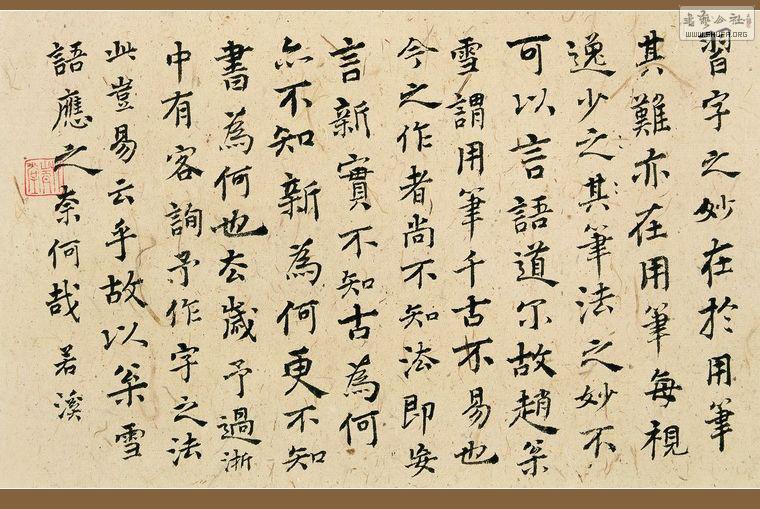 習字之妙在於用筆
其難亦在用筆每視
逸少之其筆法之妙不
可以言語道尔故趙榮
雪謂用筆千古不易也
今之作者尚不知法即妄
言新實不知古為何
亦不知新為何更不知
書為何也去歲予過浙
中有客詢予作字之法
此豈易云乎故以榮雪
語應之奈何哉 若溪
書藝公社
WWW.SHUFA.ORG